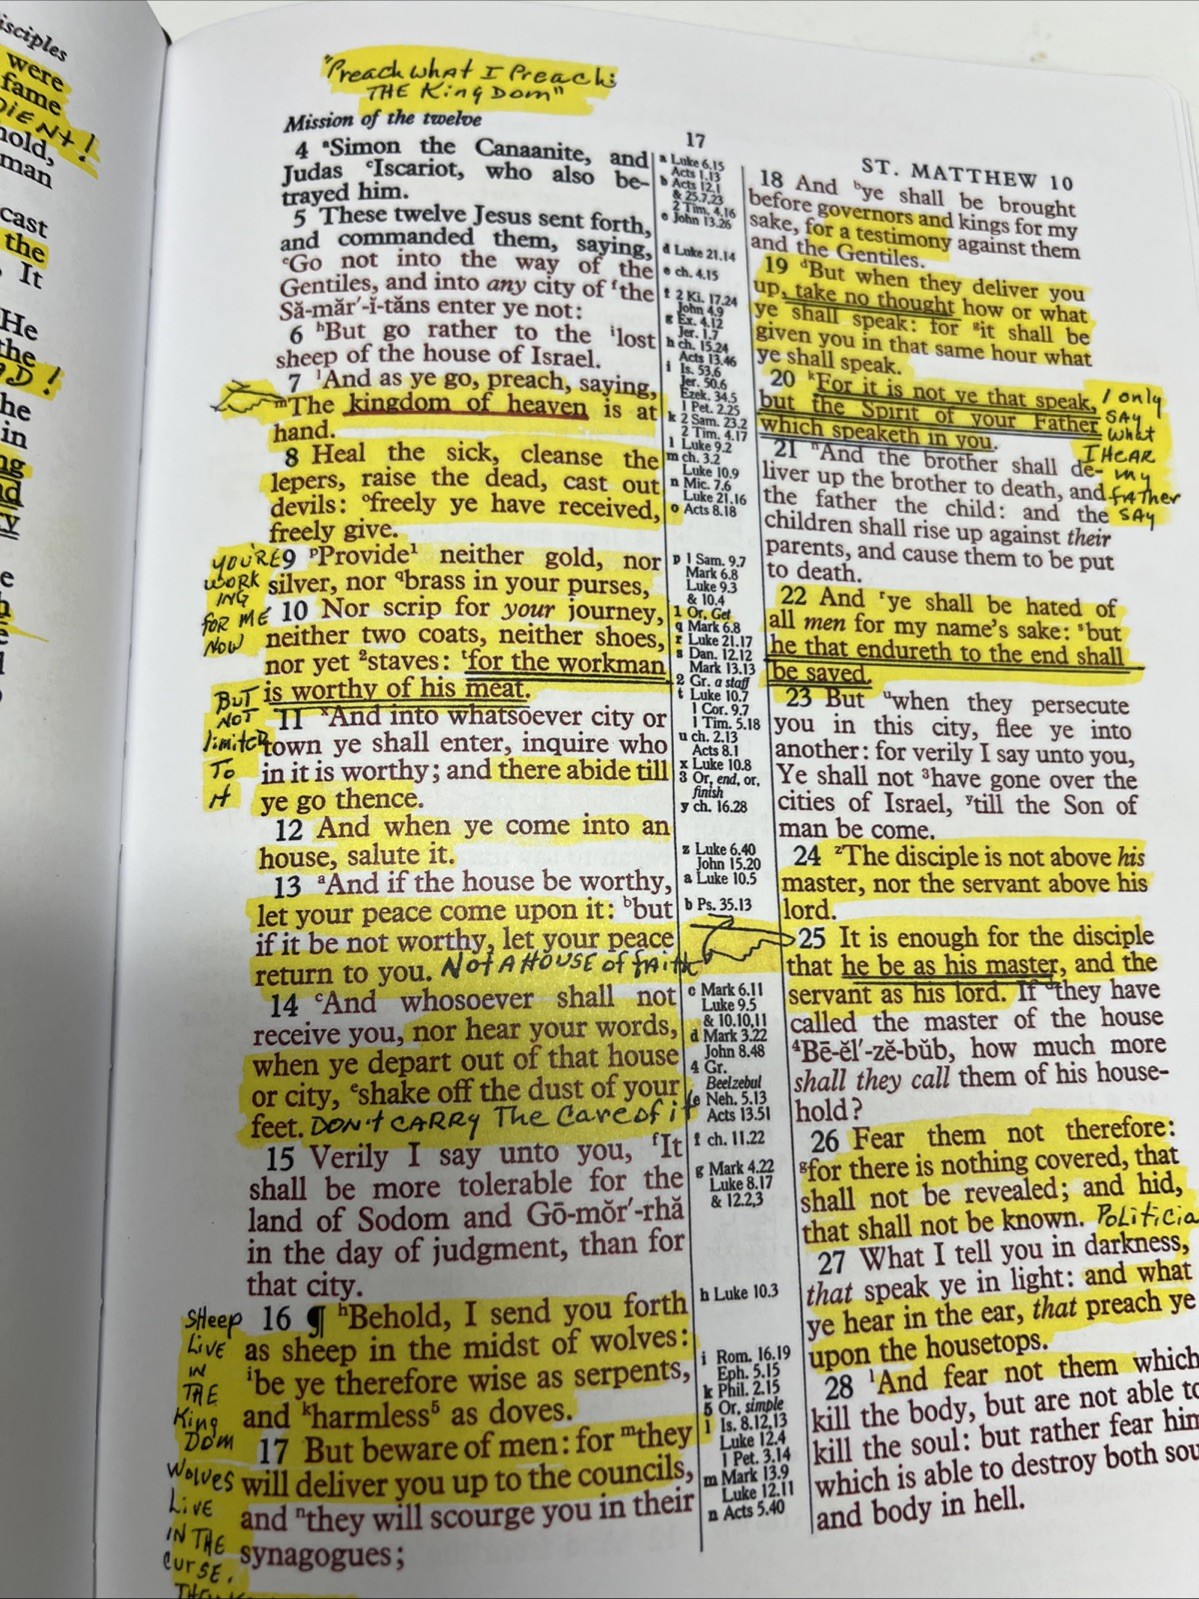 isciples
were
fame
DIENT!
hold,
man
cast
the
It
He
the
he
in
"Preach what I Preach:
THE KingDom"
Mission of the twelve
17
ST. MATTHEW 10
4 ⁿSimon the Canaanite, and
Judas ᶜIscariot, who also be-
trayed him.
5 These twelve Jesus sent forth,
and commanded them, saying,
ᵉGo not into the way of the
Gentiles, and into any city of ᶠthe
Să-măr′-ĭ-tăns enter ye not:
6 ʰBut go rather to the ⁱlost
sheep of the house of Israel.
7 ˡAnd as ye go, preach, saying,
ᵐThe kingdom of heaven is at
hand.
8 Heal the sick, cleanse the
lepers, raise the dead, cast out
devils: ᵒfreely ye have received,
freely give.
9 ᵖProvide¹ neither gold, nor
silver, nor ᑫbrass in your purses,
10 Nor scrip for your journey,
neither two coats, neither shoes,
nor yet ²staves: ᵗfor the workman
is worthy of his meat.
11 ˣAnd into whatsoever city or
town ye shall enter, inquire who
in it is worthy; and there abide till
ye go thence.
12 And when ye come into an
house, salute it.
13 ᵃAnd if the house be worthy,
let your peace come upon it: ᵇbut
if it be not worthy, let your peace
return to you. NOT A HOUSE of fAith
14 ᶜAnd whosoever shall not
receive you, nor hear your words,
when ye depart out of that house
or city, ᵉshake off the dust of your
feet. DON't CARRY The Care of it
15 Verily I say unto you, ᶠIt
shall be more tolerable for the
land of Sodom and Gō-mŏr′-rhă
in the day of judgment, than for
that city.
16 ¶ ʰBehold, I send you forth
as sheep in the midst of wolves:
ⁱbe ye therefore wise as serpents,
and ᵏharmless⁵ as doves.
17 But beware of men: for ᵐthey
will deliver you up to the councils,
and ⁿthey will scourge you in their
synagogues;
YOU'RE
WORK
ING
foR ME
NOW
BUT
NOT
limiteD
To
it
SHeep
LIVE
IN
THE
King
DoM
WOLVES
LIVE
IN THE
CURSE.
a Luke 6.15
Acts 1.13
b Acts 12.1
& 25.7,23
2 Tim. 4.16
c John 13.26
d Luke 21.14
e ch. 4.15
f 2 Ki. 17.24
John 4.9
g Ex. 4.12
Jer. 1.7
h ch. 15.24
Acts 13.46
i Is. 53.6
Jer. 50.6
Ezek. 34.5
1 Pet. 2.25
k 2 Sam. 23.2
2 Tim. 4.17
l Luke 9.2
m ch. 3.2
Luke 10.9
n Mic. 7.6
Luke 21.16
o Acts 8.18
p 1 Sam. 9.7
Mark 6.8
Luke 9.3
& 10.4
1 Or, Get
q Mark 6.8
r Luke 21.17
s Dan. 12.12
Mark 13.13
2 Gr. a staff
t Luke 10.7
1 Cor. 9.7
1 Tim. 5.18
u ch. 2.13
Acts 8.1
x Luke 10.8
3 Or, end, or,
finish
y ch. 16.28
z Luke 6.40
John 15.20
a Luke 10.5
b Ps. 35.13
c Mark 6.11
Luke 9.5
& 10.10,11
d Mark 3.22
John 8.48
4 Gr.
Beelzebul
e Neh. 5.13
Acts 13.51
f ch. 11.22
g Mark 4.22
Luke 8.17
& 12.2,3
h Luke 10.3
i Rom. 16.19
Eph. 5.15
k Phil. 2.15
5 Or, simple
l Is. 8.12,13
Luke 12.4
1 Pet. 3.14
m Mark 13.9
Luke 12.11
n Acts 5.40
18 And ᵇye shall be brought
before governors and kings for my
sake, for a testimony against them
and the Gentiles.
19 ᵈBut when they deliver you
up, take no thought how or what
ye shall speak: for ᵍit shall be
given you in that same hour what
ye shall speak.
20 ᵏFor it is not ye that speak,
but the Spirit of your Father
which speaketh in you.
21 ⁿAnd the brother shall de-
liver up the brother to death, and
the father the child: and the
children shall rise up against their
parents, and cause them to be put
to death.
22 And ʳye shall be hated of
all men for my name's sake: ˢbut
he that endureth to the end shall
be saved.
23 But ᵘwhen they persecute
you in this city, flee ye into
another: for verily I say unto you,
Ye shall not ³have gone over the
cities of Israel, ʸtill the Son of
man be come.
24 ᶻThe disciple is not above his
master, nor the servant above his
lord.
25 It is enough for the disciple
that he be as his master, and the
servant as his lord. If ᵈthey have
called the master of the house
⁴Bē-ĕl′-zĕ-bŭb, how much more
shall they call them of his house-
hold?
26 Fear them not therefore:
ᵍfor there is nothing covered, that
shall not be revealed; and hid,
that shall not be known. Politicia
27 What I tell you in darkness,
that speak ye in light: and what
ye hear in the ear, that preach ye
upon the housetops.
28 ˡAnd fear not them which
kill the body, but are not able to
kill the soul: but rather fear him
which is able to destroy both sou
and body in hell.
I only
SAY
What
I HEAR
my
fATHer
SAY